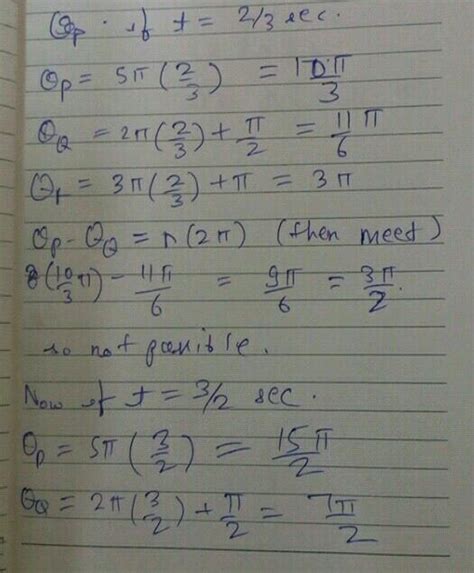 θp · if t = 2/3 sec.
θp = 5π(2/3) = 10π/3
θQ = 2π(2/3) + π/2 = 11/6 π
θr = 3π(2/3) + π = 3π
θp - θQ = n(2π) (then meet)
(10/3 π) - 11π/6 = 9π/6 = 3π/2.
so not possible.
Now if t = 3/2 sec.
θp = 5π(3/2) = 15π/2
θQ = 2π(3/2) + π/2 = 7π/2